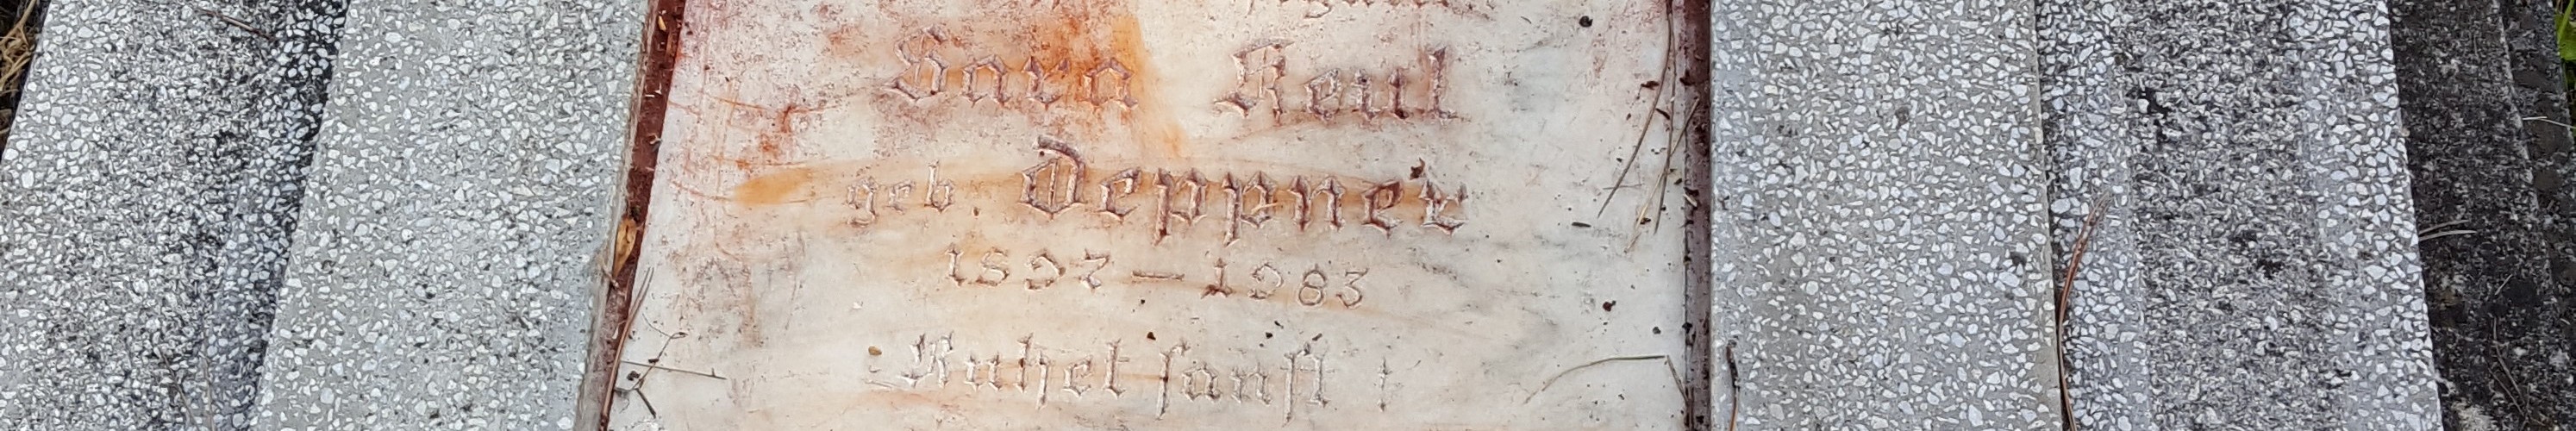 Sara Reul
geb Deppner
1897 – 1983
Ruhet sanft !